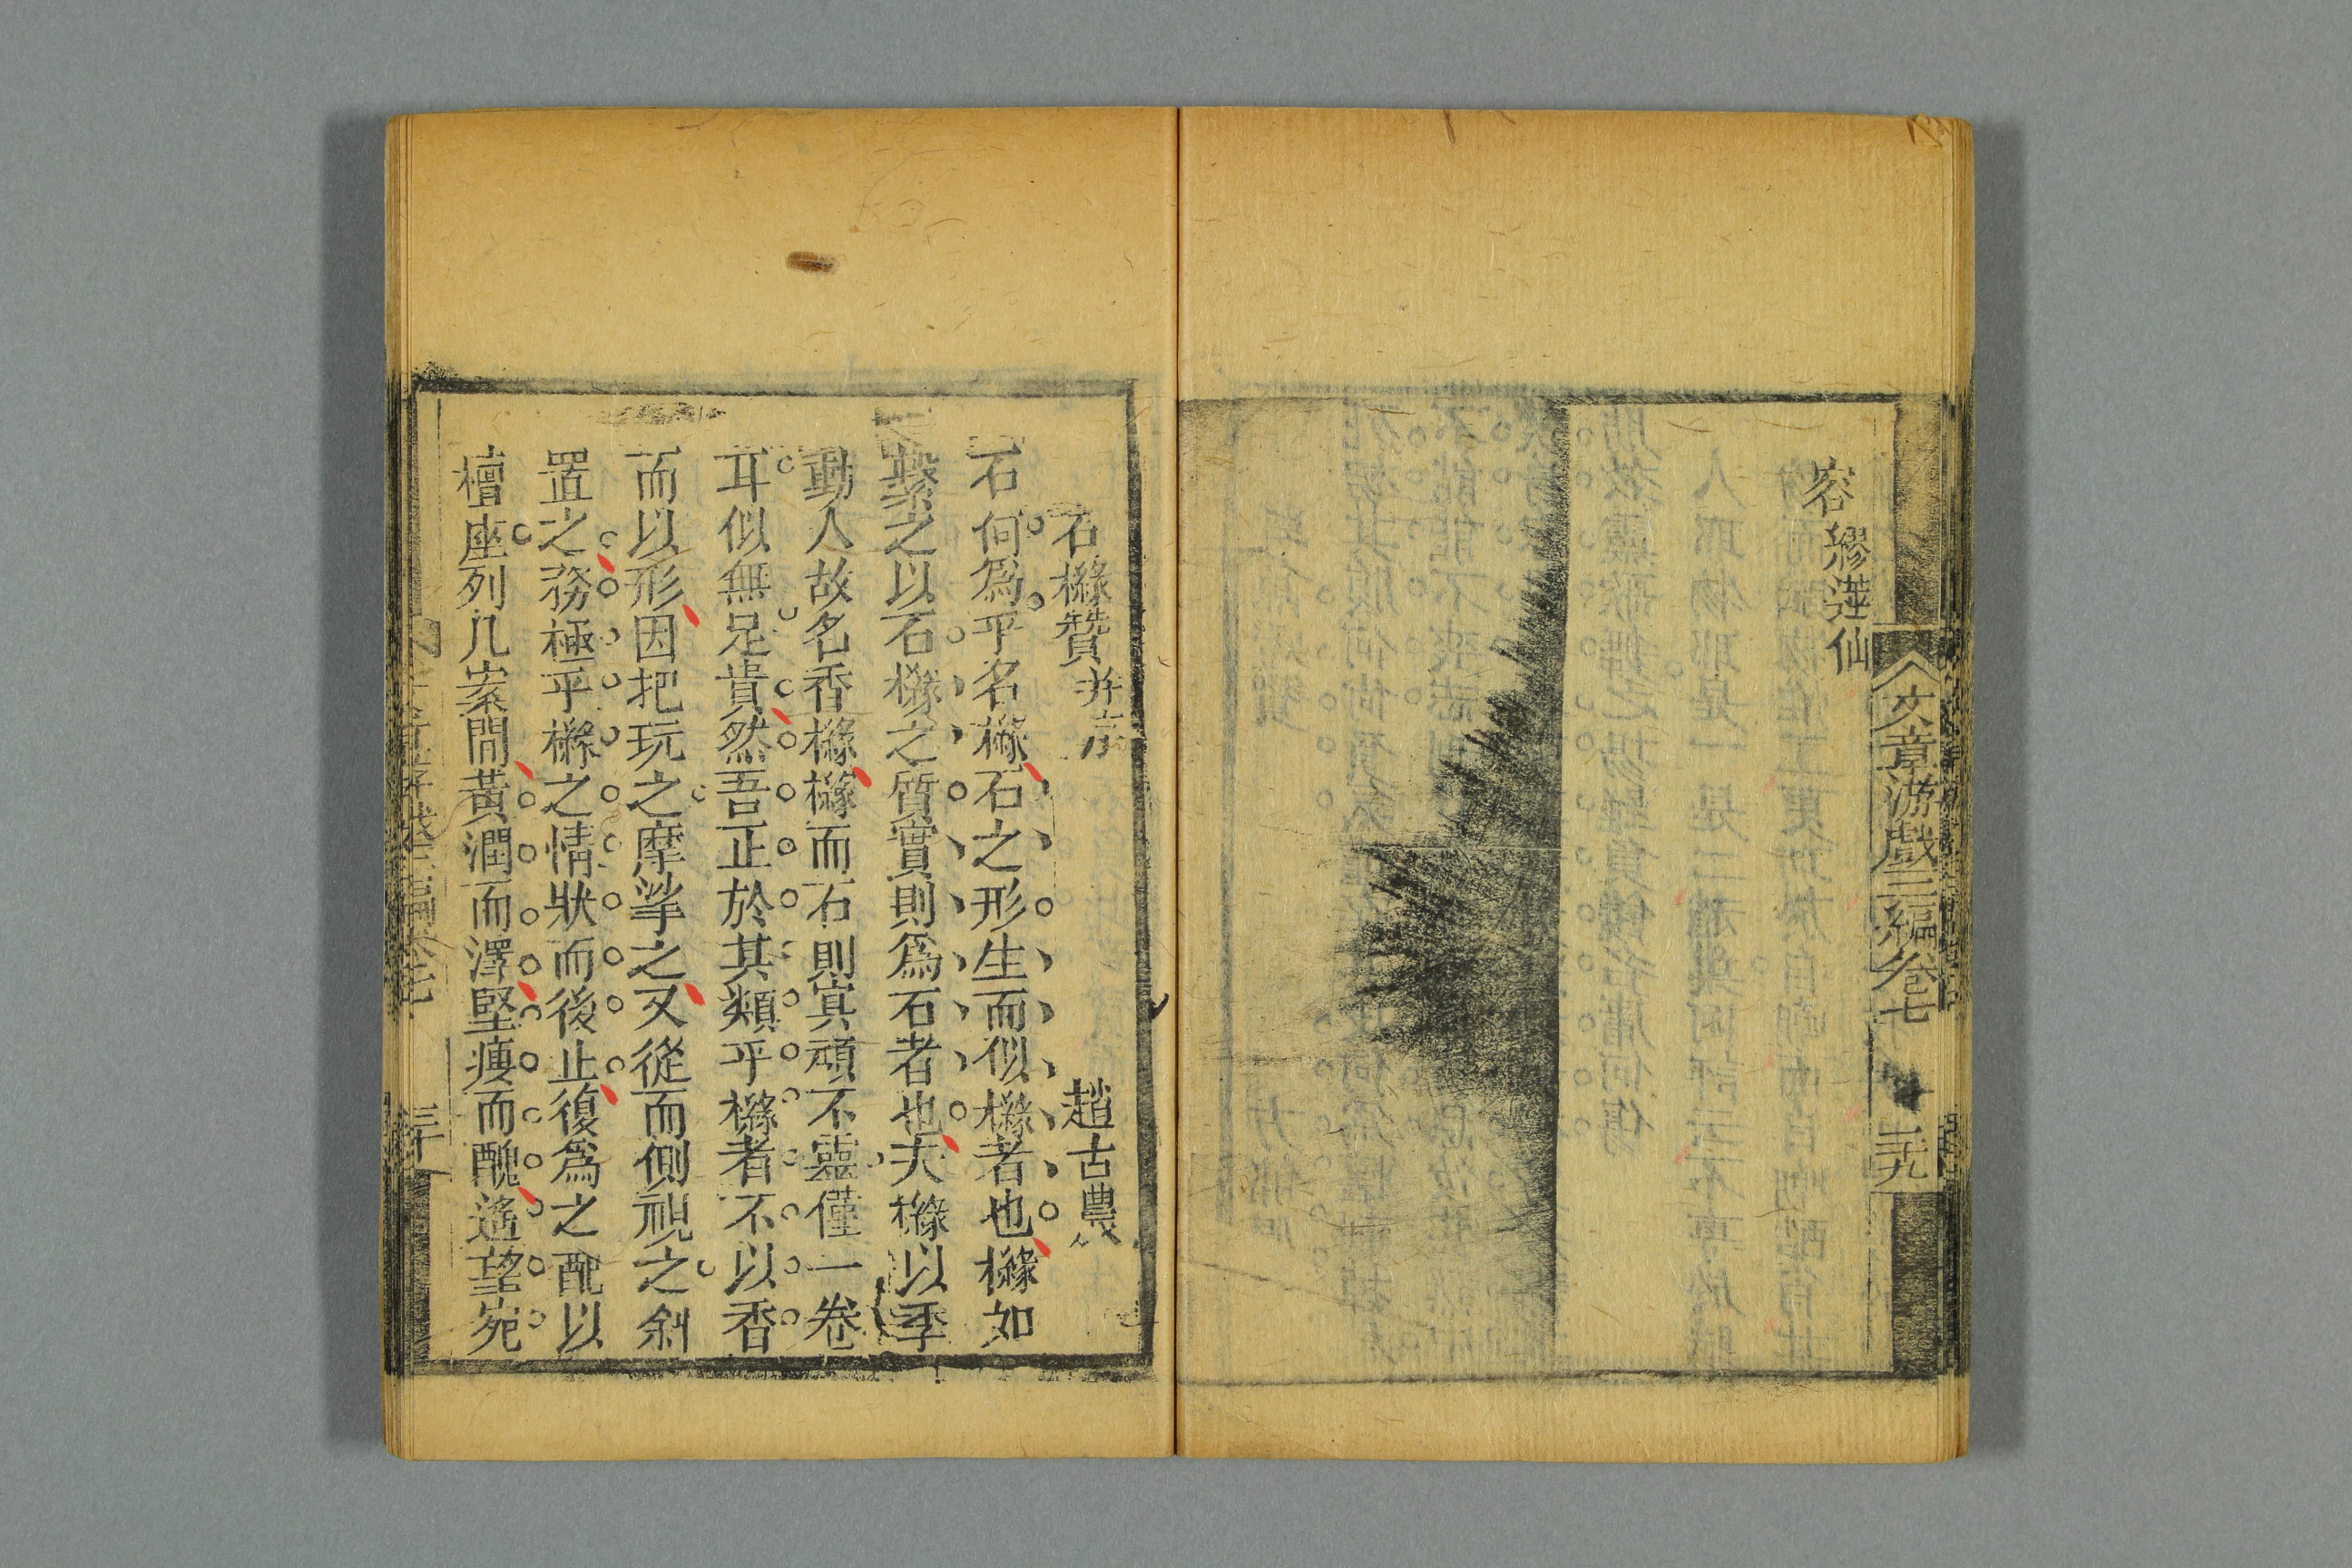 容繆蓮仙
文章游戲三編卷七
三九
石櫞贊并序
趙古農
石何爲乎名櫞石之形生而似櫞者也櫞如
槩之以石櫞之質實則爲石者也夫櫞以季
動人故名香櫞櫞而石則寘頑不靈僅一卷
耳似無足貴然吾正於其類乎櫞者不以香
而以形因把玩之摩挲之又從而側視之斜
置之務極乎櫞之情狀而後止復爲之配以
檀座列几案間黃潤而澤堅瘦而醜遙望宛
三十